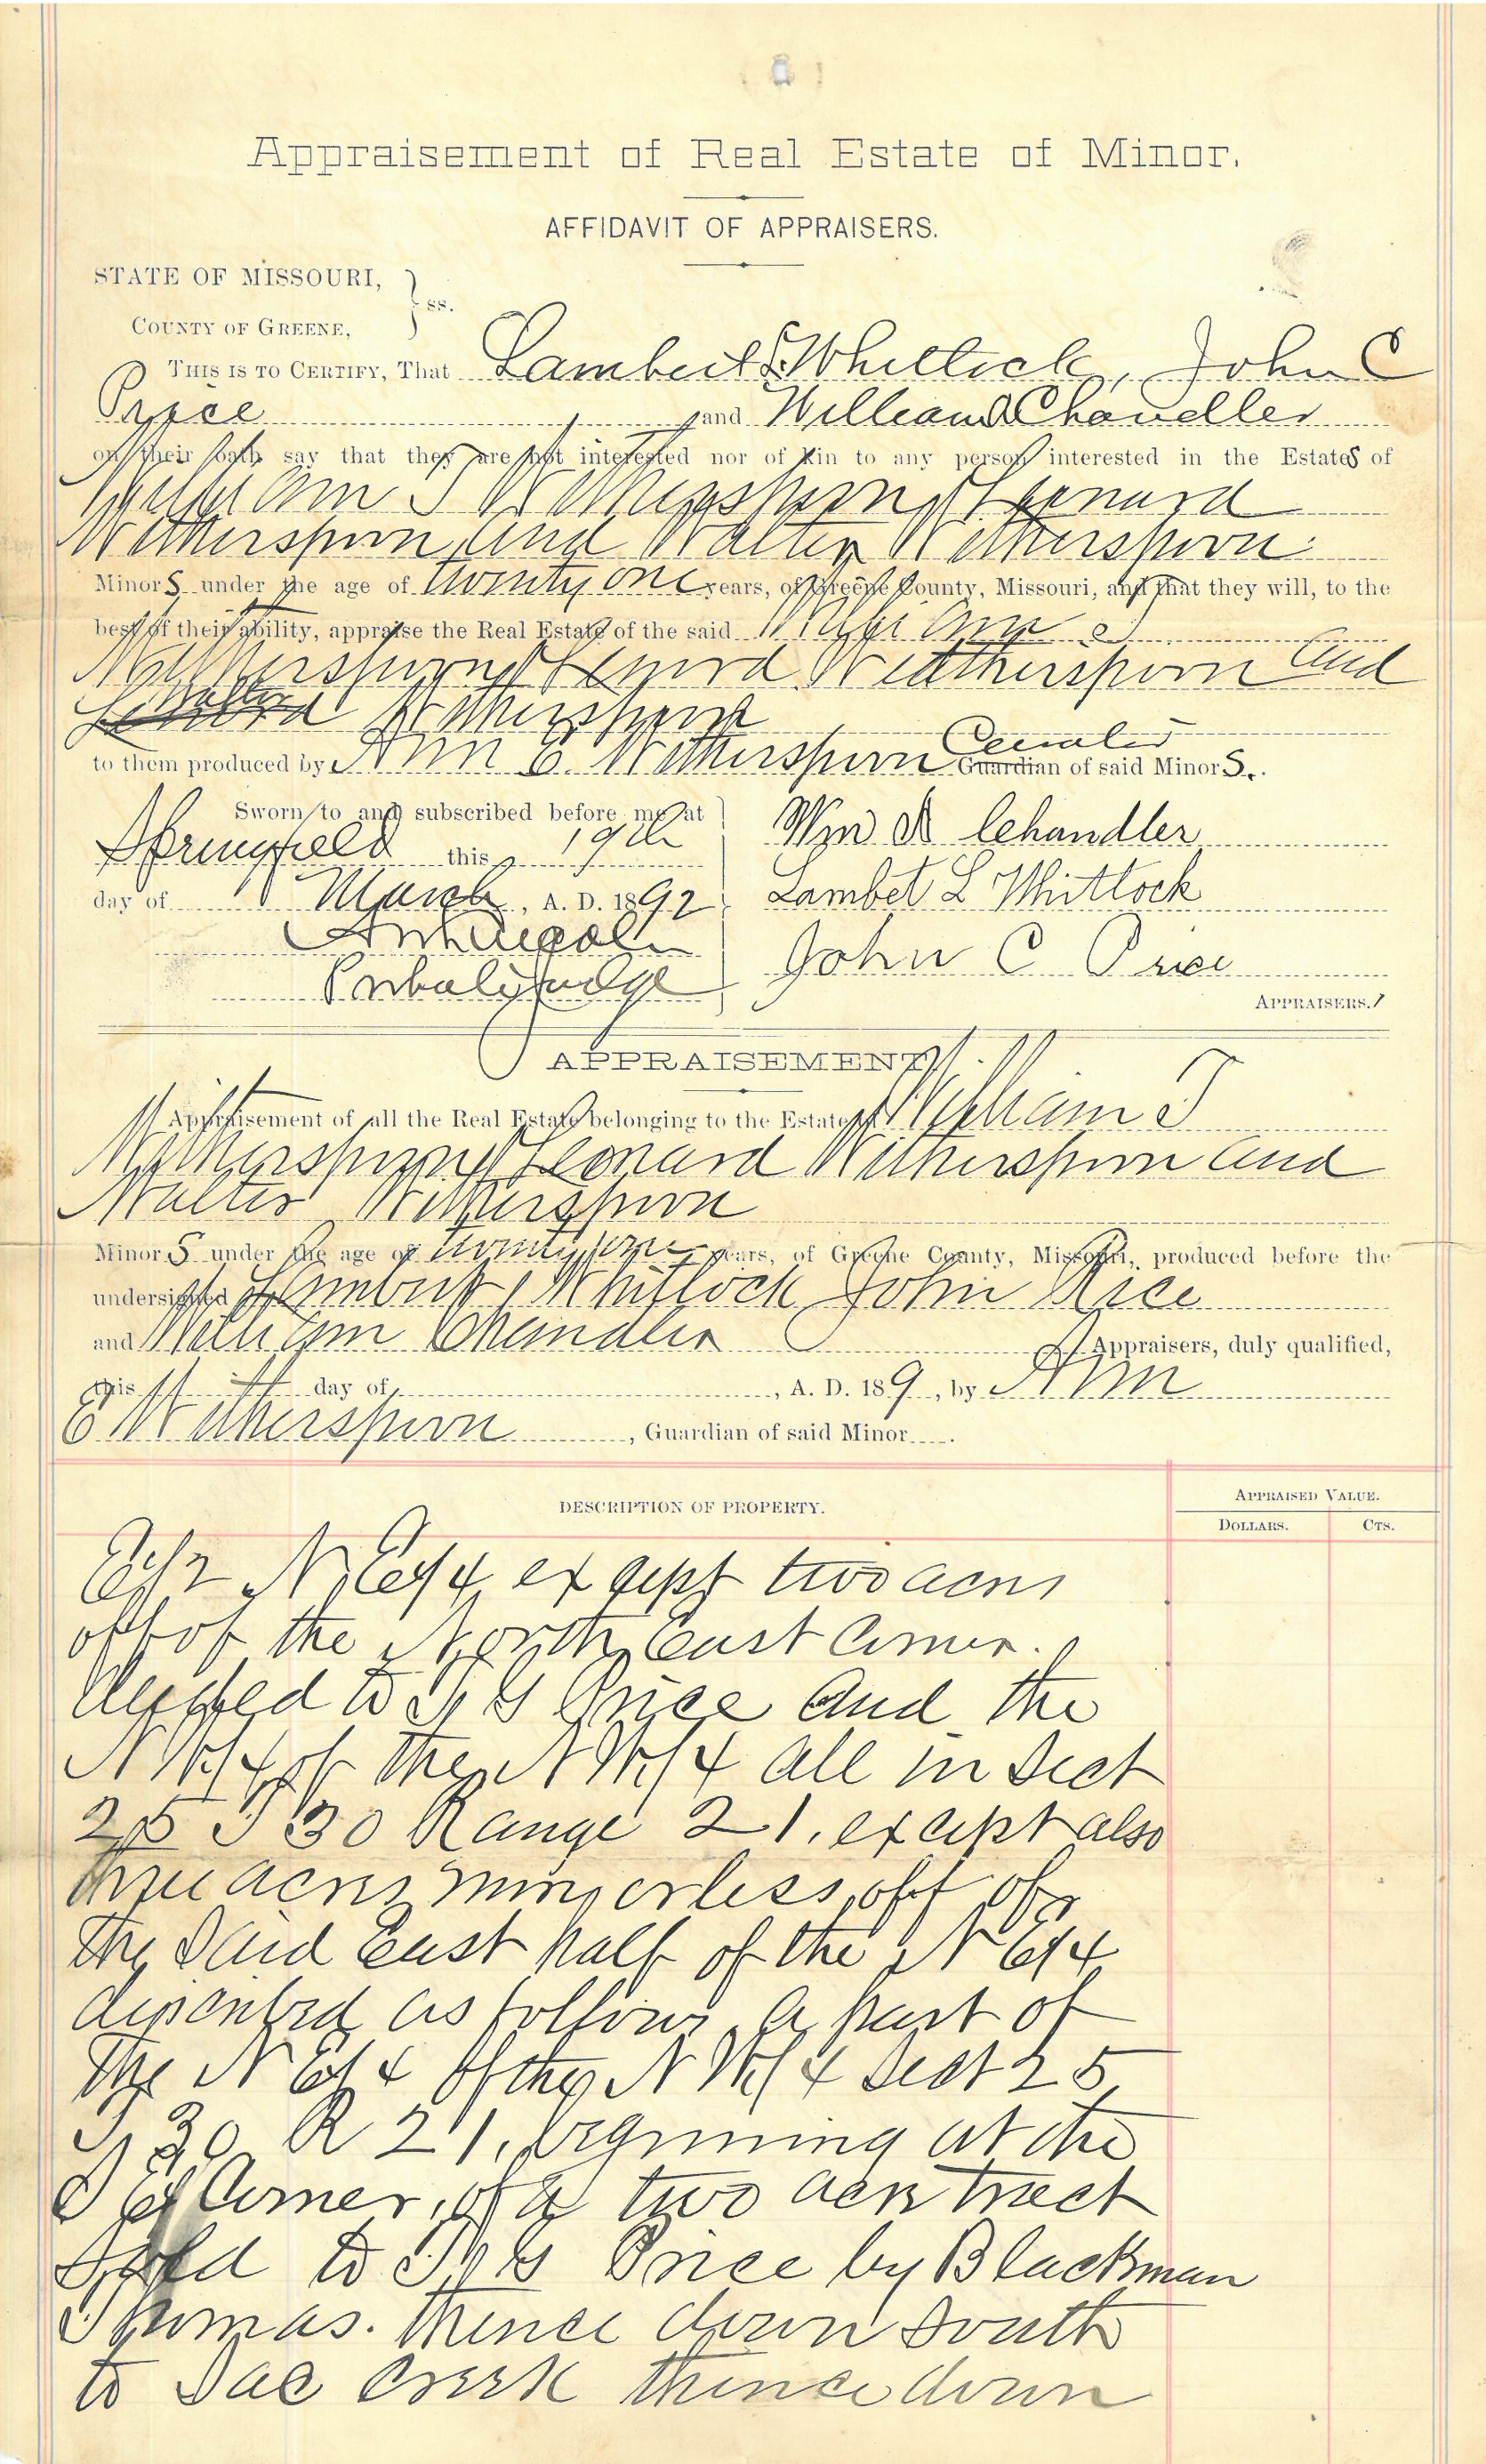 Appraisement of Real Estate of Minor.
AFFIDAVIT OF APPRAISERS.
STATE OF MISSOURI,
COUNTY OF GREENE, } ss.
THIS IS TO CERTIFY, That Lambert L Whitlock, John C
Price and William A Chandler
on their oath say that they are not interested nor of kin to any person interested in the Estates of
William T Witherspoon, Leonard
Witherspoon, and Walter Witherspoon
Minors under the age of twenty one years, of Greene County, Missouri, and that they will, to the
best of their ability, appraise the Real Estate of the said William T
Witherspoon, Lenord Weatherspoon and
Walter Witherspoon
to them produced by Ann E. Witherspoon Curator Guardian of said Minors.
Sworn to and subscribed before me at
Springfield this 19th
day of March, A. D. 1892
Probate Judge
Wm A Chandler
Lambet L Whitlock
John C Price
APPRAISERS.
APPRAISEMENT
Appraisement of all the Real Estate belonging to the Estate of William T
Witherspoon, Leonard Witherspoon and
Walter Witherspoon
Minors under the age of twenty one years, of Greene County, Missouri, produced before the
undersigned Lambert Whitlock John Price
and William Chandler Appraisers, duly qualified,
this day of , A. D. 189 , by Ann
E Witherspoon , Guardian of said Minor .
DESCRIPTION OF PROPERTY.
APPRAISED VALUE.
DOLLARS. CTS.
E 1/2 N E 1/4 except two acres
off of the North East Corner.
deeded to G Price and the
N W 1/4 of the N W 1/4 all in Sect
25 T 30 Range 21, except also
three acres more or less off of
the Said East half of the N E 1/4
described as follows, a part of
The N E 1/4 of the N W 1/4 Sect 25
T 30 R 21, beginning at the
S E Corner, of a two acre tract
sold to G Price by Blackman
Thomas. thence down South
to Sac Creek thence down